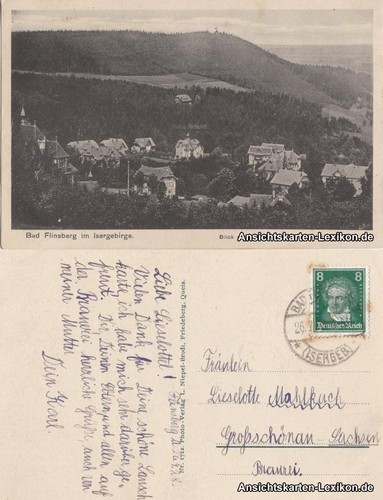 Bad Flinsberg im Isergebirge.
Blick
Ansichtskarten-Lexikon.de
Liebe Lieselotte!
Flinsberg
Vielen Dank für Deine schöne
karte, ich habe mich sehr darüber ge-
freut. Dir, Deinen Eltern und allen auf
der Brauerei herzliche Grüße, auch von
meiner Mutter
Dein Karl.
Photo-Verlag
Friedeberg, Queis.
8 8
Deutsches Reich
BAD
26.
(ISERGEB.)
Fräulein
Lieselotte
Großschönau-Sachsen
Brauerei
Ansichtskarten-Lexikon.de